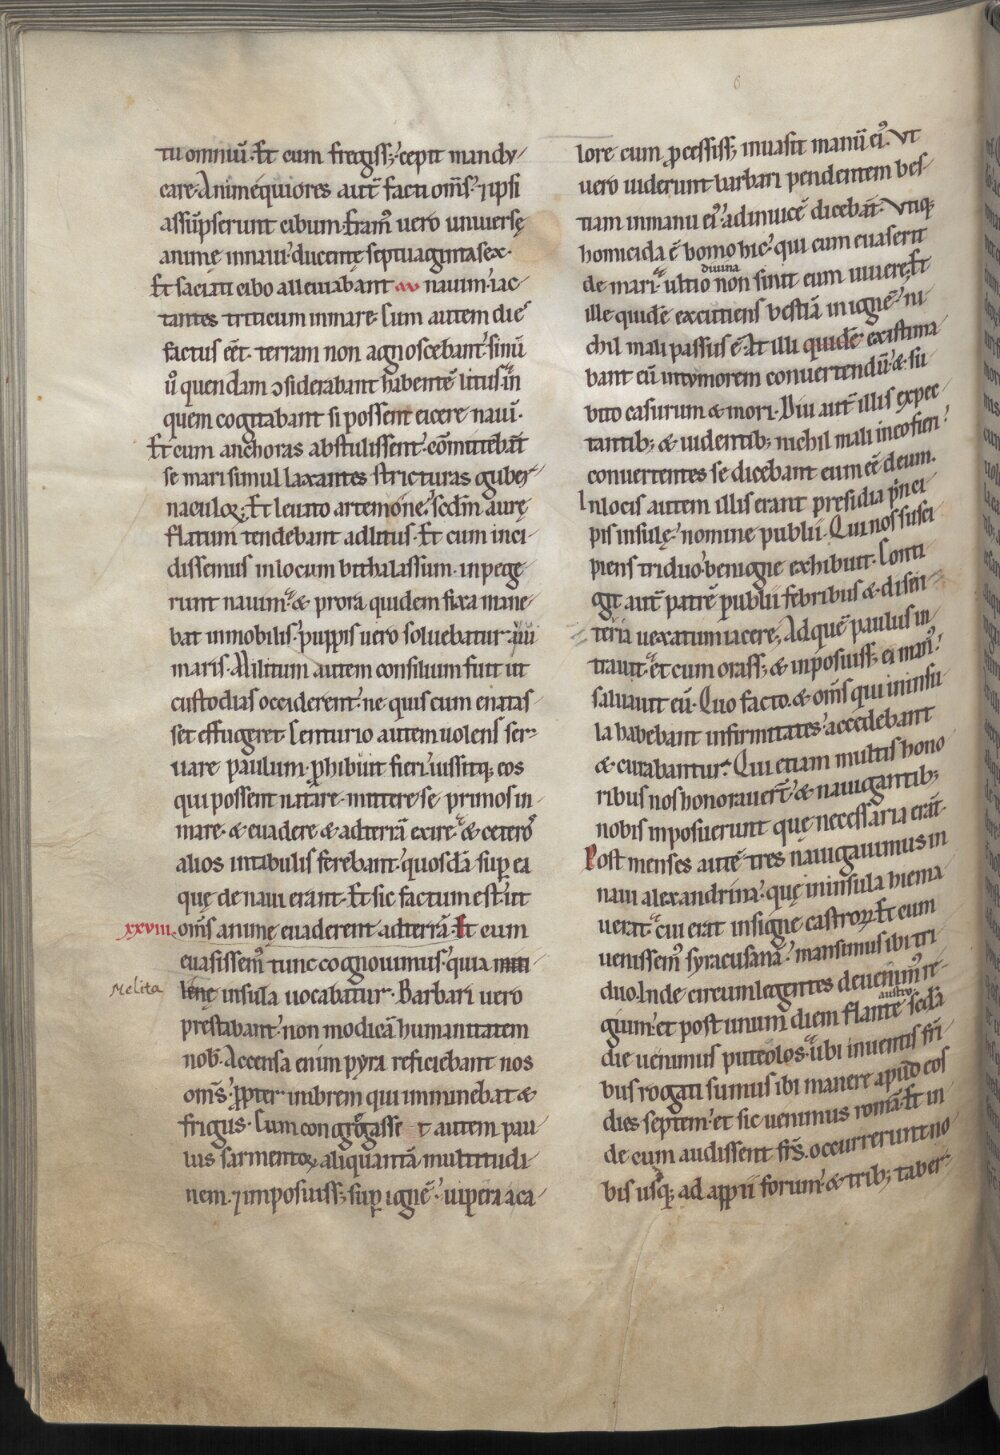 6
tu omniū. Et cum fregiss; cepit mandu
care. Animequiores aut̄ facti om̄s. ⁊ ipsi
assūpserunt cibum. Eram᷒ vero universę
animę innavi. ducentę septuaginta sex.
Et saciati cibo alleviabant navim. iac
tantes triticum inmare. Cum autem dies
factus eēt. terram non agnoscebant. sinū
ů quendam ↄsiderabant habentē litus. in
quem cogitabant si possent eicere navī.
Et cum anchoras abstulissent. cōmittebāt
se mari simul laxantes stricturas guber
naculoꝝ. Et levato artemone. sc̄dm aurę
flatum tendebant adlitus. Et cum inci
dissemus inlocum bithalassium. inpege
runt navim. & prora quidem fixa mane
bat inmobilis. puppis vero solvebatur a vi
maris. Militum autem consilium fuit ut
custodias occiderent. ne quis cum enatas
set effugeret. Centurio autem volens ser
vare paulum. ꝓhibuit fieri. iussitq; eos
qui possent natare. mittere se primos in
mare. & evadere & adterrā exire. & cetero᷒
alios intabulis ferebant. quosdā suꝑ ea
quę de navi erant. Et sic factum est. ut
xxviii. om̄s animę evaderent adterrā. Et cum
evasissem᷒ tunc cognovimus. quia miti
Melita lenę insula vocabatur. Barbari vero
prestabant. non modicā humanitatem
nob̄. Accensa enim pyra reficiebant nos
om̄s. ꝓpter imbrem qui imminebat &
frigus. Cum congregasset autem pau
lus sarmentoꝝ aliquantā multitudi
nem. ⁊ imposuiss; suꝑ ignē. vipera a ca
lore cum ꝓcessiss; invasit manū ei᷒. Vt
vero viderunt barbari pendentem bes
tiam inmanu ei᷒. adinvicē dicebāt. Vtiq;
homicida ē homo hic. qui cum evaserit
divina
de mari. ultio non sinit eum vivere. Et
ille quidē excutiens bestiā in ignē. ni
chil mali passus ē. Et illi quidē existima
bant eū intymorem convertendū. & su
bito casurum & mori. Diu aut̄ illis expec
tantib; & videntib; nichil mali ineo fieri.
convertentes se dicebant eum eē deum.
Inlocis autem illis erant presidia p̄nci
pis insulę. nomine publii. Qui nos susci
piens triduo benigne exhibuit. Conti
git aut̄ patrē publii febribus & disen
teria vexatum iacere. Ad quē paulus in
travit. et cum orass; & inposuiss; ei man᷒.
salvavit eū. Quo facto. & om̄s qui ininsu
la habebant infirmitates. accedebant
& curabantur. Qui etiam multis hono
ribus nos honoraver̄t. & navigantib;
nobis imposuerunt quę necessaria erāt.
Post menses autē tres navigavimus in
navi alexandrina. quę ininsula hiema
verat. cui erat insigne castroꝝ. Et cum
venissem᷒ syracusanā. mansimus ibi tri
duo. Inde circumlegentes devenim᷒ re
austro
gium. et post unum diem flante sc̄da
die venimus puteolos. ubi inventis fr̄i
bus rogati sumus ibi manere apud eos
dies septem. et sic venimus romā. Et in
de cum audissent fr̄s. occurrerunt no
bis usq; ad appii forum. & trib; taber